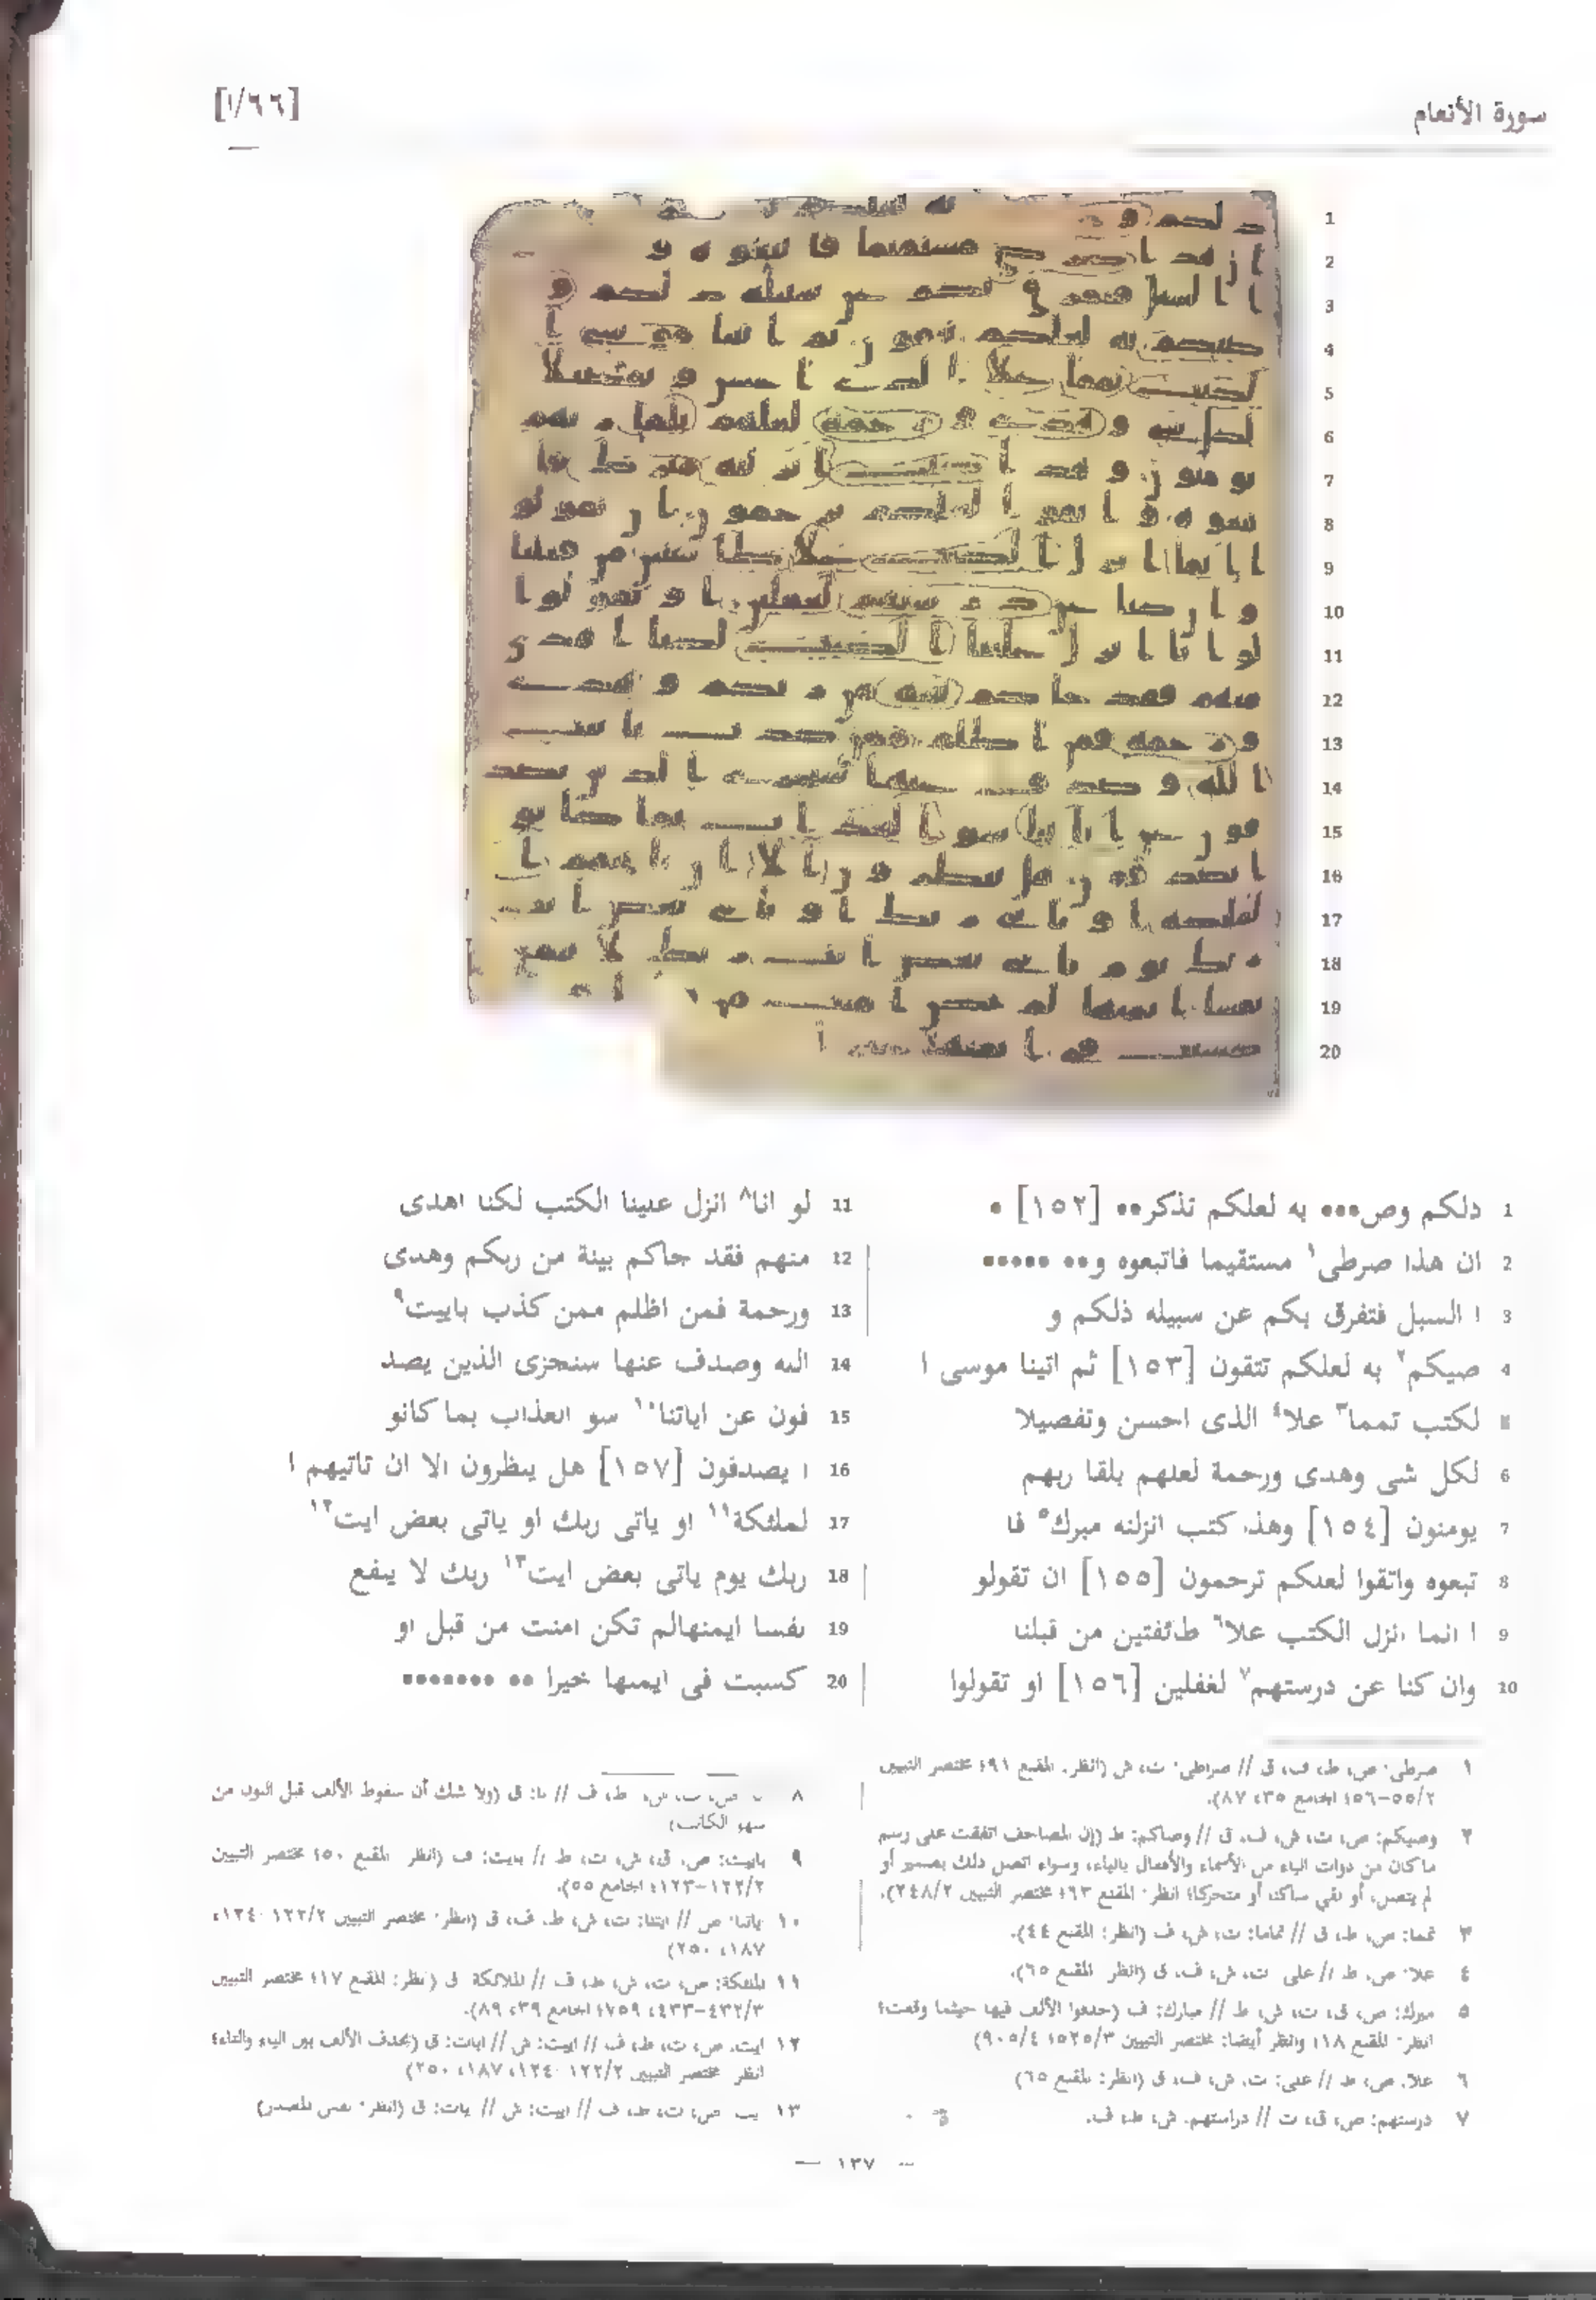 سورة الأنعام
[١/٦٦]
1 دلكم وص••• به لعلكم تذكر•• [١٥٢] •
2 ان هذا صرطى١ مستقيما فاتبعوه و•• •••••
3 ا السبل فتفرق بكم عن سبيله ذلكم و
4 صيكم٢ به لعلكم تتقون [١٥٣] ثم اتينا موسى ا
5 لكتب تمما٣ علا٤ الذى احسن وتفصيلا
6 لكل شى وهدى ورحمة لعلهم بلقا ربهم
7 يومنون [١٥٤] وهذا كتب انزلنه مبرك٥ فا
8 تبعوه واتقوا لعلكم ترحمون [١٥٥] ان تقولو
9 ا انما انزل الكتب علا٦ طئفتين من قبلنا
10 وان كنا عن درستهم٧ لغفلين [١٥٦] او تقولوا
11 لو انا٨ انزل علينا الكتب لكنا اهدى
12 منهم فقد جاكم بينة من ربكم وهدى
13 ورحمة فمن اظلم ممن كذب باييت٩
14 الله وصدف عنها سنجزى الذين يصد
15 فون عن اياتنا١٠ سو العذاب بما كانو
16 ا يصدفون [١٥٧] هل ينظرون الا ان تاتيهم ا
17 لملئكة١١ او ياتى ربك او ياتى بعض ايت١٢
18 ربك يوم ياتى بعض ايت١٣ ربك لا ينفع
19 نفسا ايمنهالم تكن امنت من قبل او
20 كسبت فى ايمنها خيرا •• •••••••
١ صرطى: ص، ط، ف، ق // صراطى: ت، ش (انظر: المقنع ٩١؛ مختصر التبيين
٥٥/٢-٥٦؛ الجامع ٣٥، ٨٧).
٢ وصيكم: ص، ت، ش، ف، ق // وصاكم: ط (إن المصاحف اتفقت على رسم
ما كان من ذوات الياء من الأسماء والأفعال بالياء، وسواء اتصل ذلك بضمير أو
لم يتصل، أو لقي ساكنا أو متحركا؛ انظر: المقنع ٦٣؛ مختصر التبيين ٢٤٨/٢).
٣ تمما: ص، ط، ق // تماما: ت، ش، ف (انظر: المقنع ٤٤).
٤ علا: ص، ط // على: ت، ش، ف، ق (انظر: المقنع ٦٥).
٥ مبرك: ص، ق، ت، ش، ط // مبارك: ف (حذفوا الألف فيها حيثما وقعت؛
انظر: المقنع ١٨؛ وانظر أيضا: مختصر التبيين ٥٢٥/٣؛ ٩٠٥/٤)
٦ علا: ص، ط // على: ت، ش، ف، ق (انظر: المقنع ٦٥)
٧ درستهم: ص، ق، ت // دراستهم: ش، ط، ف.
٨ ص، ت، ش، ط، ف // نا: ق (ولا شك أن سقوط الألف قبل النون من
سهو الكاتب)
٩ باييت: ص، ق، ش، ت، ط // بايت: ف (انظر: المقنع ٥٠؛ مختصر التبيين
١٢٢/٢-١٢٣؛ الجامع ٥٥).
١٠ ياتنا: ص // ايتنا: ت، ش، ط، ف، ق (انظر: مختصر التبيين ١٢٢/٢-١٢٤،
١٨٧، ٢٥٠)
١١ لملئكة: ص، ت، ش، ط، ف // لملائكة: ق (انظر: المقنع ١٧؛ مختصر التبيين
٤٣٢/٣-٤٣٣، ٧٥٩؛ الجامع ٣٩، ٨٩).
١٢ ايت: ص، ت، ط، ف // اييت: ش // ايات: ق (بحذف الألف بين الياء والتاء؛
انظر: مختصر التبيين ١٢٢/٢-١٢٤، ١٨٧، ٢٥٠)
١٣ ص، ت، ط، ف // اييت: ش // يات: ق (انظر: نفس المصدر)
— ١٣٧ —